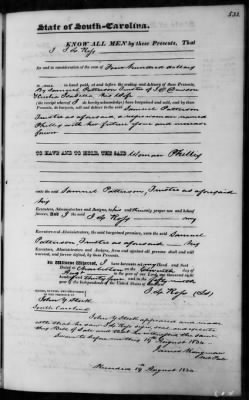 532
State of South-Carolina.
KNOW ALL MEN by these Presents, That
I J. G. Ross
for and in consideration of the sum of Four hundred dollars
to me in hand paid, at and before the sealing and delivery of these Presents,
By Samuel Patterson Trustee of
his Wife
(the receipt whereof I do hereby acknowledge) have bargained and sold, and by these
Presents, do bargain, sell and deliver to the said Samuel Patterson
Trustee as aforesaid, a woman named
Phillis with her future issue and increase
forever
TO HAVE AND TO HOLD THE SAID Woman Phillis
unto the said Samuel Patterson, Trustee as aforesaid
his
Executors, Administrators and Assigns, to his and their only proper use and behoof
forever. And I the said J. G. Ross my
Executors and Administrators, the said bargained premises, unto the said Samuel
Patterson Trustee as aforesaid his
Executors, Administrators and Assigns, from and against all persons shall and will
warrant, and forever defend, by these Presents.
In Witness Whereof, I have hereunto set my Hand and Seal
Dated at Charleston on the
day of August in the year of our Lord one thousand eight
hundred and thirty and in the fifty ninth year of the
Independence of the United States of America
J. G. Ross (LS)
SIGNED, SEALED, AND DELIVERED
IN THE PRESENCE OF
John Y. Stock
South Carolina
John Y. Stock appeared and made
oath that he saw J. G. Ross sign seal and execute
this Bill of Sale and that he witnessed the same
Sworn to before me this 19th August 1834
James
Recorded 19th August 1834